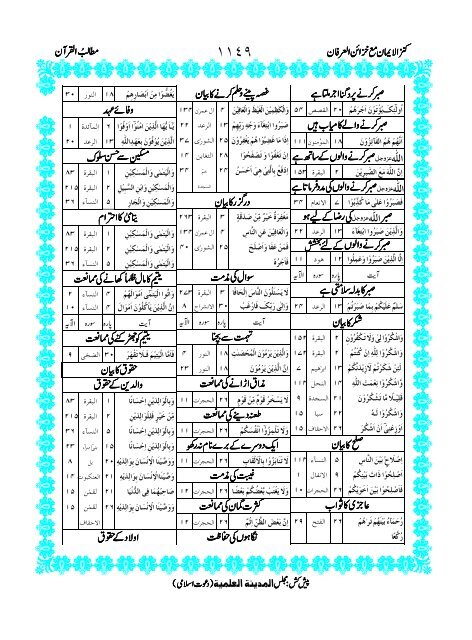 کنز الایمان مع خزائن العرفان ۱۱۴۹ مطالب القرآن
صبر کرنے پر دگنا اجر ملتا ہے
اُولٰٓئِكَ یُؤْتَوْنَ اَجْرَهُمْ ۲۰ القصص ۵۴
صبر کرنے والے کامیاب ہیں
اَنَّهُمْ هُمُ الْفَآىٕزُوْنَ ۱۸ المؤمنون ۱۱۱
اللہ عزوجل صبر کرنے والوں کے ساتھ ہے
اِنَّ اللّٰهَ مَعَ الصّٰبِرِیْنَ ۲ البقرة ۱۵۳
اللہ عزوجل صبر کرنے والوں کی مدد فرماتا ہے
فَصَبَرُوْا عَلٰى مَا كُذِّبُوْا ۷ الانعام ۳۴
صبر اللہ عزوجل کی رضا کے لیے ہو
وَالَّذِیْنَ صَبَرُوا ابْتِغَآءَ ۱۳ الرعد ۲۲
صبر کرنے والوں کے لئے بخشش
اِلَّا الَّذِیْنَ صَبَرُوْا وَعَمِلُوا ۱۲ هود ۱۱
آیت پارہ سورہ الآیۃ
صبر کا بدلہ سلامتی ہے
سَلٰمٌ عَلَیْكُمْ بِمَا صَبَرْتُمْ ۱۳ الرعد ۲۴
شکر کا بیان
وَاشْكُرُوْا لِیْ وَلَا تَكْفُرُوْنِ ۲ البقرة ۱۵۲
وَاشْكُرُوْا لِلّٰهِ اِنْ كُنْتُمْ ۲ البقرة ۱۷۲
لَىٕنْ شَكَرْتُمْ لَاَزِیْدَنَّكُمْ ۱۳ ابراهيم ۷
وَاشْكُرُوْا نِعْمَتَ اللّٰهِ ۱۴ النحل ۱۱۴
قَلِیْلًا مَّا تَشْكُرُوْنَ ۲۱ السجدة ۹
وَاشْكُرُوْا لَهٗ ۲۲ سبا ۱۵
اَوْزِعْنِیْۤ اَنْ اَشْكُرَ ۲۶ الاحقاف ۱۵
صلح کا بیان
اِصْلَاحٍۭ بَیْنَ النَّاسِ ۵ النساء ۱۱۴
وَاَصْلِحُوْا ذَاتَ بَیْنِكُمْ ۹ الانفال ۱
فَاَصْلِحُوْا بَیْنَ اَخَوَیْكُمْ ۲۶ الحجرات ۱۰
عاجزی کا ثواب
رُحَمَآءُ بَیْنَهُمْ تَرٰىهُمْ رُكَّعًا ۲۶ الفتح ۲۹
غصہ پینے وحلم کرنے کا بیان
وَالْكٰظِمِیْنَ الْغَیْظَ وَالْعَافِیْنَ ۴ آل عمران ۱۳۴
صَبَرُوا ابْتِغَآءَ وَجْهِ رَبِّهِمْ ۱۳ الرعد ۲۲
اِذَا مَا غَضِبُوْا هُمْ یَغْفِرُوْنَ ۲۵ الشوریٰ ۳۷
اِنْ تَعْفُوْا وَتَصْفَحُوْا ۲۸ التغابن ۱۴
اِدْفَعْ بِالَّتِیْ هِیَ اَحْسَنُ ۲۴ حم السجدة ۳۴
درگزر کا بیان
مَغْفِرَةٌ خَیْرٌ مِّنْ صَدَقَةٍ ۳ البقرة ۲۶۳
وَالْعَافِیْنَ عَنِ النَّاسِ ۴ آل عمران ۱۳۴
فَمَنْ عَفَا وَاَصْلَحَ فَاَجْرُهٗ ۲۵ الشوریٰ ۴۰
سوال کی مذمت
لَا یَسْــٴَـلُوْنَ النَّاسَ اِلْحَافًا ۳ البقرة ۲۷۳
وَاِلٰى رَبِّكَ فَارْغَبْ ۳۰ الانشراح ۸
آیت پارہ سورہ الآیۃ
تہمت سے بچنا
وَالَّذِیْنَ یَرْمُوْنَ الْمُحْصَنٰتِ ۱۸ النور ۴
اِنَّ الَّذِیْنَ یَرْمُوْنَ ۱۸ النور ۲۳
مذاق اڑانے کی ممانعت
لَا یَسْخَرْ قَوْمٌ مِّنْ قَوْمٍ ۲۶ الحجرات ۱۱
طعنہ دینے کی ممانعت
وَلَا تَلْمِزُوْۤا اَنْفُسَكُمْ ۲۶ الحجرات ۱۱
ایک دوسرے کے برے نام نہ رکھو
وَلَا تَنَابَزُوْا بِالْاَلْقَابِ ۲۶ الحجرات ۱۱
غیبت کی مذمت
وَلَا یَغْتَبْ بَّعْضُكُمْ بَعْضًا ۲۶ الحجرات ۱۲
کثرت گمان کی ممانعت
اِنَّ بَعْضَ الظَّنِّ اِثْمٌ ۲۶ الحجرات ۱۲
نگاہوں کی حفاظت
یَغُضُّوْا مِنْ اَبْصَارِهِمْ ۱۸ النور ۳۰
وفائے عہد
یٰۤاَیُّهَا الَّذِیْنَ اٰمَنُوْۤا اَوْفُوْا ۶ المائدة ۱
الَّذِیْنَ یُوْفُوْنَ بِعَهْدِ اللّٰهِ ۱۳ الرعد ۲۰
مسکین سے حسن سلوک
وَالْیَتٰمٰى وَالْمَسٰكِیْنِ ۱ البقرة ۸۳
وَالْمَسٰكِیْنِ وَابْنِ السَّبِیْلِ ۲ البقرة ۲۱۵
وَالْمَسٰكِیْنِ وَالْجَارِ ۵ النساء ۳۶
یتامی کا احترام
وَالْیَتٰمٰى وَالْمَسٰكِیْنِ ۱ البقرة ۸۳
وَالْیَتٰمٰى وَالْمَسٰكِیْنِ ۲ البقرة ۲۱۵
وَالْیَتٰمٰى وَالْمَسٰكِیْنِ ۵ النساء ۳۶
یتیم کا مال ظلماً کھانے کی ممانعت
وَاٰتُوا الْیَتٰمٰۤى اَمْوَالَهُمْ ۴ النساء ۲
اِنَّ الَّذِیْنَ یَاْكُلُوْنَ اَمْوَالَ ۴ النساء ۱۰
آیت پارہ سورہ الآیۃ
یتیم کو جھڑکنے کی ممانعت
فَاَمَّا الْیَتِیْمَ فَلَا تَقْهَرْ ۳۰ الضحیٰ ۹
حقوق کا بیان
والدین کے حقوق
وَبِالْوَالِدَیْنِ اِحْسَانًا ۱ البقرة ۸۳
مِّنْ خَیْرٍ فَلِلْوَالِدَیْنِ ۲ البقرة ۲۱۵
وَبِالْوَالِدَیْنِ اِحْسَانًا ۵ النساء ۳۶
وَبِالْوَالِدَیْنِ اِحْسَانًا ۱۵ ۲۳
وَوَصَّیْنَا الْاِنْسَانَ بِوَالِدَیْهِ ۲۰ العنكبوت
وَوَصَّیْنَا الْاِنْسَانَ بِوَالِدَیْهِ ۲۱ لقمٰن ۱۴
صَاحِبْهُمَا فِی الدُّنْیَا ۲۱ لقمٰن ۱۵
وَوَصَّیْنَا الْاِنْسَانَ بِوَالِدَیْهِ ۲۶ الاحقاف ۱۵
اولاد کے حقوق
پیش کش: مجلس المدینة العلمیة (دعوت اسلامی)